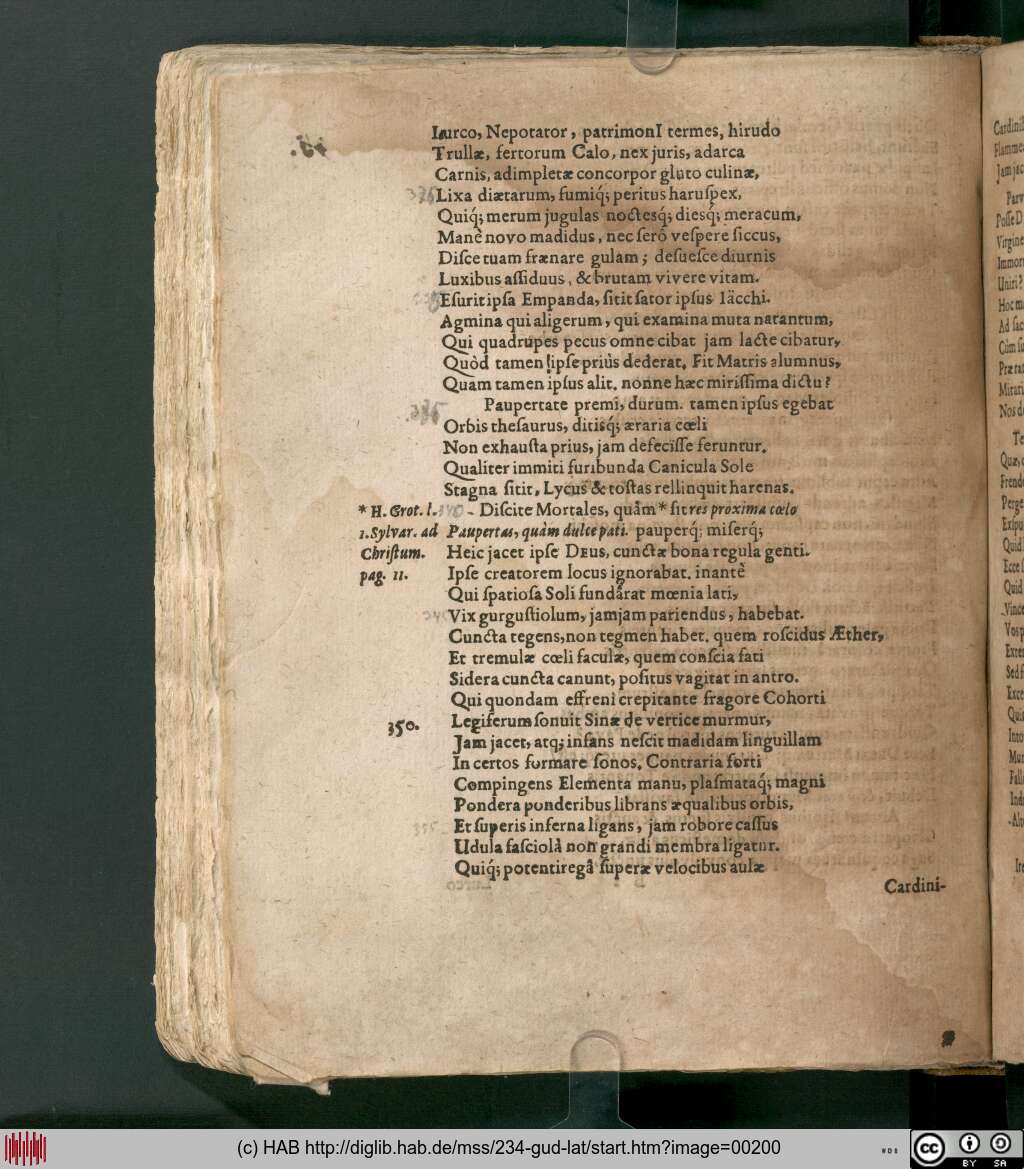 Lurco, Nepotator, patrimonI termes, hirudo
Trullæ, fertorum Calo, nex juris, adarca
Carnis, adimpletæ concorpor gluto culinæ,
Lixa diætarum, fumiq́; peritus haruſpex,
Quiq́; merum jugulas noctesq́; diesq́; meracum,
Manè novo madidus, nec ſerô veſpere ſiccus,
Diſce tuam frænare gulam; deſueſce diurnis
Luxibus aſſiduus, & brutam vivere vitam.
Eſurit ipſa Empanda, ſitit ſator ipſus Iäcchi.
Agmina qui aligerum, qui examina muta natantum,
Qui quadrupes pecus omne cibat jam lacte cibatur,
Quòd tamen ipſe priùs dederat. Fit Matris alumnus,
Quam tamen ipſus alit. nonne hæc miriſſima dictu?
Paupertate premi, durum. tamen ipſus egebat
Orbis theſaurus, ditiſq́; æraria cœli
Non exhauſta prius, jam defeciſſe feruntur.
Qualiter immiti furibunda Canicula Sole
Stagna ſitit, Lycus & toſtas rellinquit harenas.
* H. Grot. l. Diſcite Mortales, quàm * ſit res proxima cœlo
1. Sylvar. ad Paupertas, quàm dulce pati. pauperq́; miſerq́;
Chriſtum. Heic jacet ipſe DEUS, cunctæ bona regula genti.
pag. 11. Ipſe creatorem locus ignorabat. inantè
Qui ſpatioſa Soli fundârat mœnia lati,
Vix gurguſtiolum, jamjam pariendus, habebat.
Cuncta tegens, non tegmen habet. quem roſcidus Æther,
Et tremulæ cœli faculæ, quem conſcia fati
Sidera cuncta canunt, poſitus vagitat in antro.
Qui quondam effreni crepitante fragore Cohorti
350. Legiferum ſonuit Sinæ de vertice murmur,
Jam jacet, atq; infans neſcit madidam linguillam
In certos formare ſonos. Contraria forti
Compingens Elementa manu, plaſmataq́; magni
Pondera ponderibus librans æqualibus orbis,
Et ſuperis inferna ligans, jam robore caſſus
Udula faſciolâ non grandi membra ligatur.
Quiq́; potenti regâ ſuperæ velocibus aulæ
Cardini-
(c) HAB http://diglib.hab.de/mss/234-gud-lat/start.htm?image=00200
cc BY SA